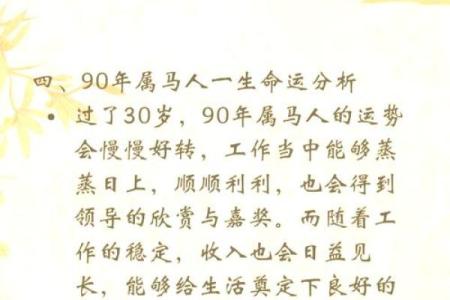 四、90年属马人一生命运分析
• 过了30岁，90年属马人的运势
会慢慢好转，工作当中能够蒸
蒸日上，顺顺利利，也会得到
领导的欣赏与嘉奖。而随着工
作的稳定，收入也会日益见
长，能够给生活奠定下良好的